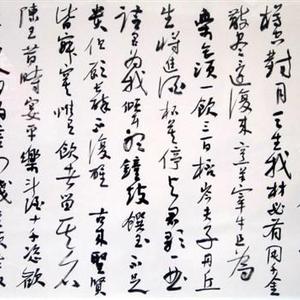 樽對月天生我材必有用千金
散盡還復來烹羊宰牛且為
樂會須一飲三百杯岑夫子丹丘
生將進酒杯莫停與君歌一曲
請君為我傾耳聽鐘鼓饌玉不足
貴但願長醉不復醒 古來聖賢
皆寂寞惟有飲者留其名
陳王昔時宴平樂斗酒十千恣歡